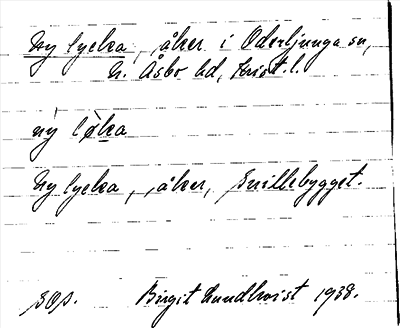 Ny lycka, åker i Oderljunga sn,
N. Åsbo hd, Krist. l.
ný lø̀ka
Ny lycka, åker, Snillebygget.
Birgit Lundkvist 1938.